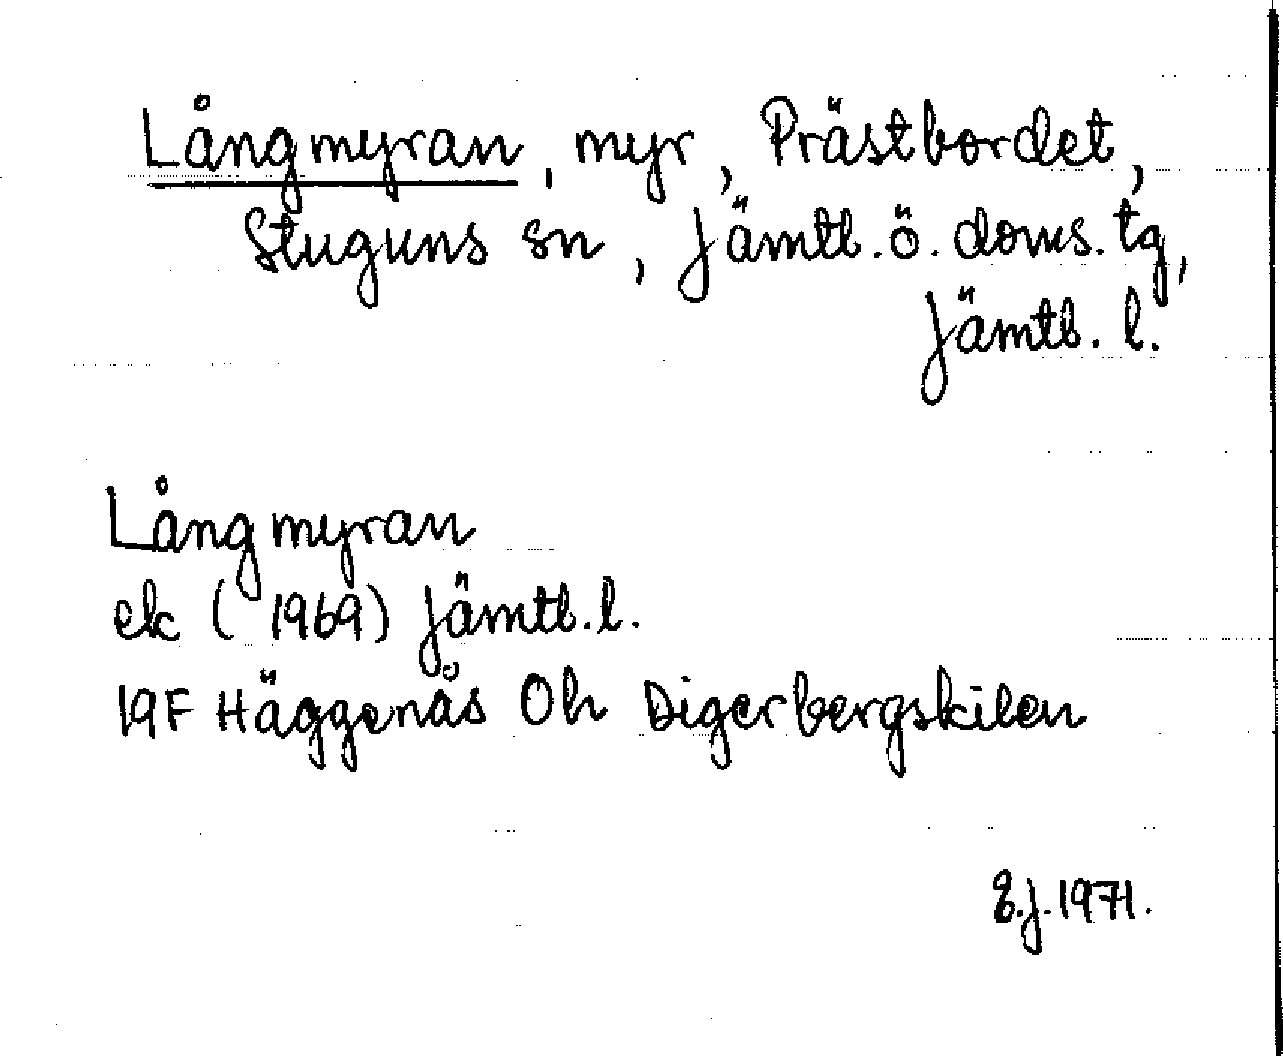 Långmyran, myr, Prästbordet,
Stuguns sn, Jämtl.ö.doms.tg,
Jämtl. l.
Långmyran
ek (1969) Jämtl.l.
19F Häggenås 0h Digerbergskilen
E.J. 1971.